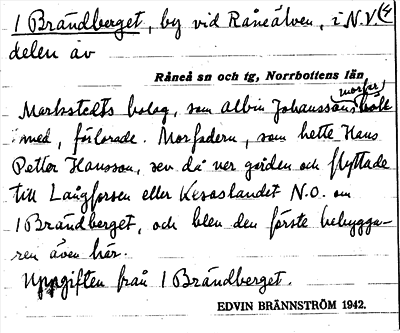 1 Brändberget, by vid Råneälven, i N.V. (4
delen av
Råneå sn och tg, Norrbottens län
morfar
Markstedts bolag, som albin Johanssons höll
med, förlorade. Morfadern, som hette Hans
Petter Hansson, rev då ner gården och flyttade
till Långforsen eller Kesaslandet N.O. om
1 Brändberget, och blev den förste bebygga-
ren även här.
Uppgiften från 1 Brändberget.
EDVIN BRÄNNSTRÖM 1942.